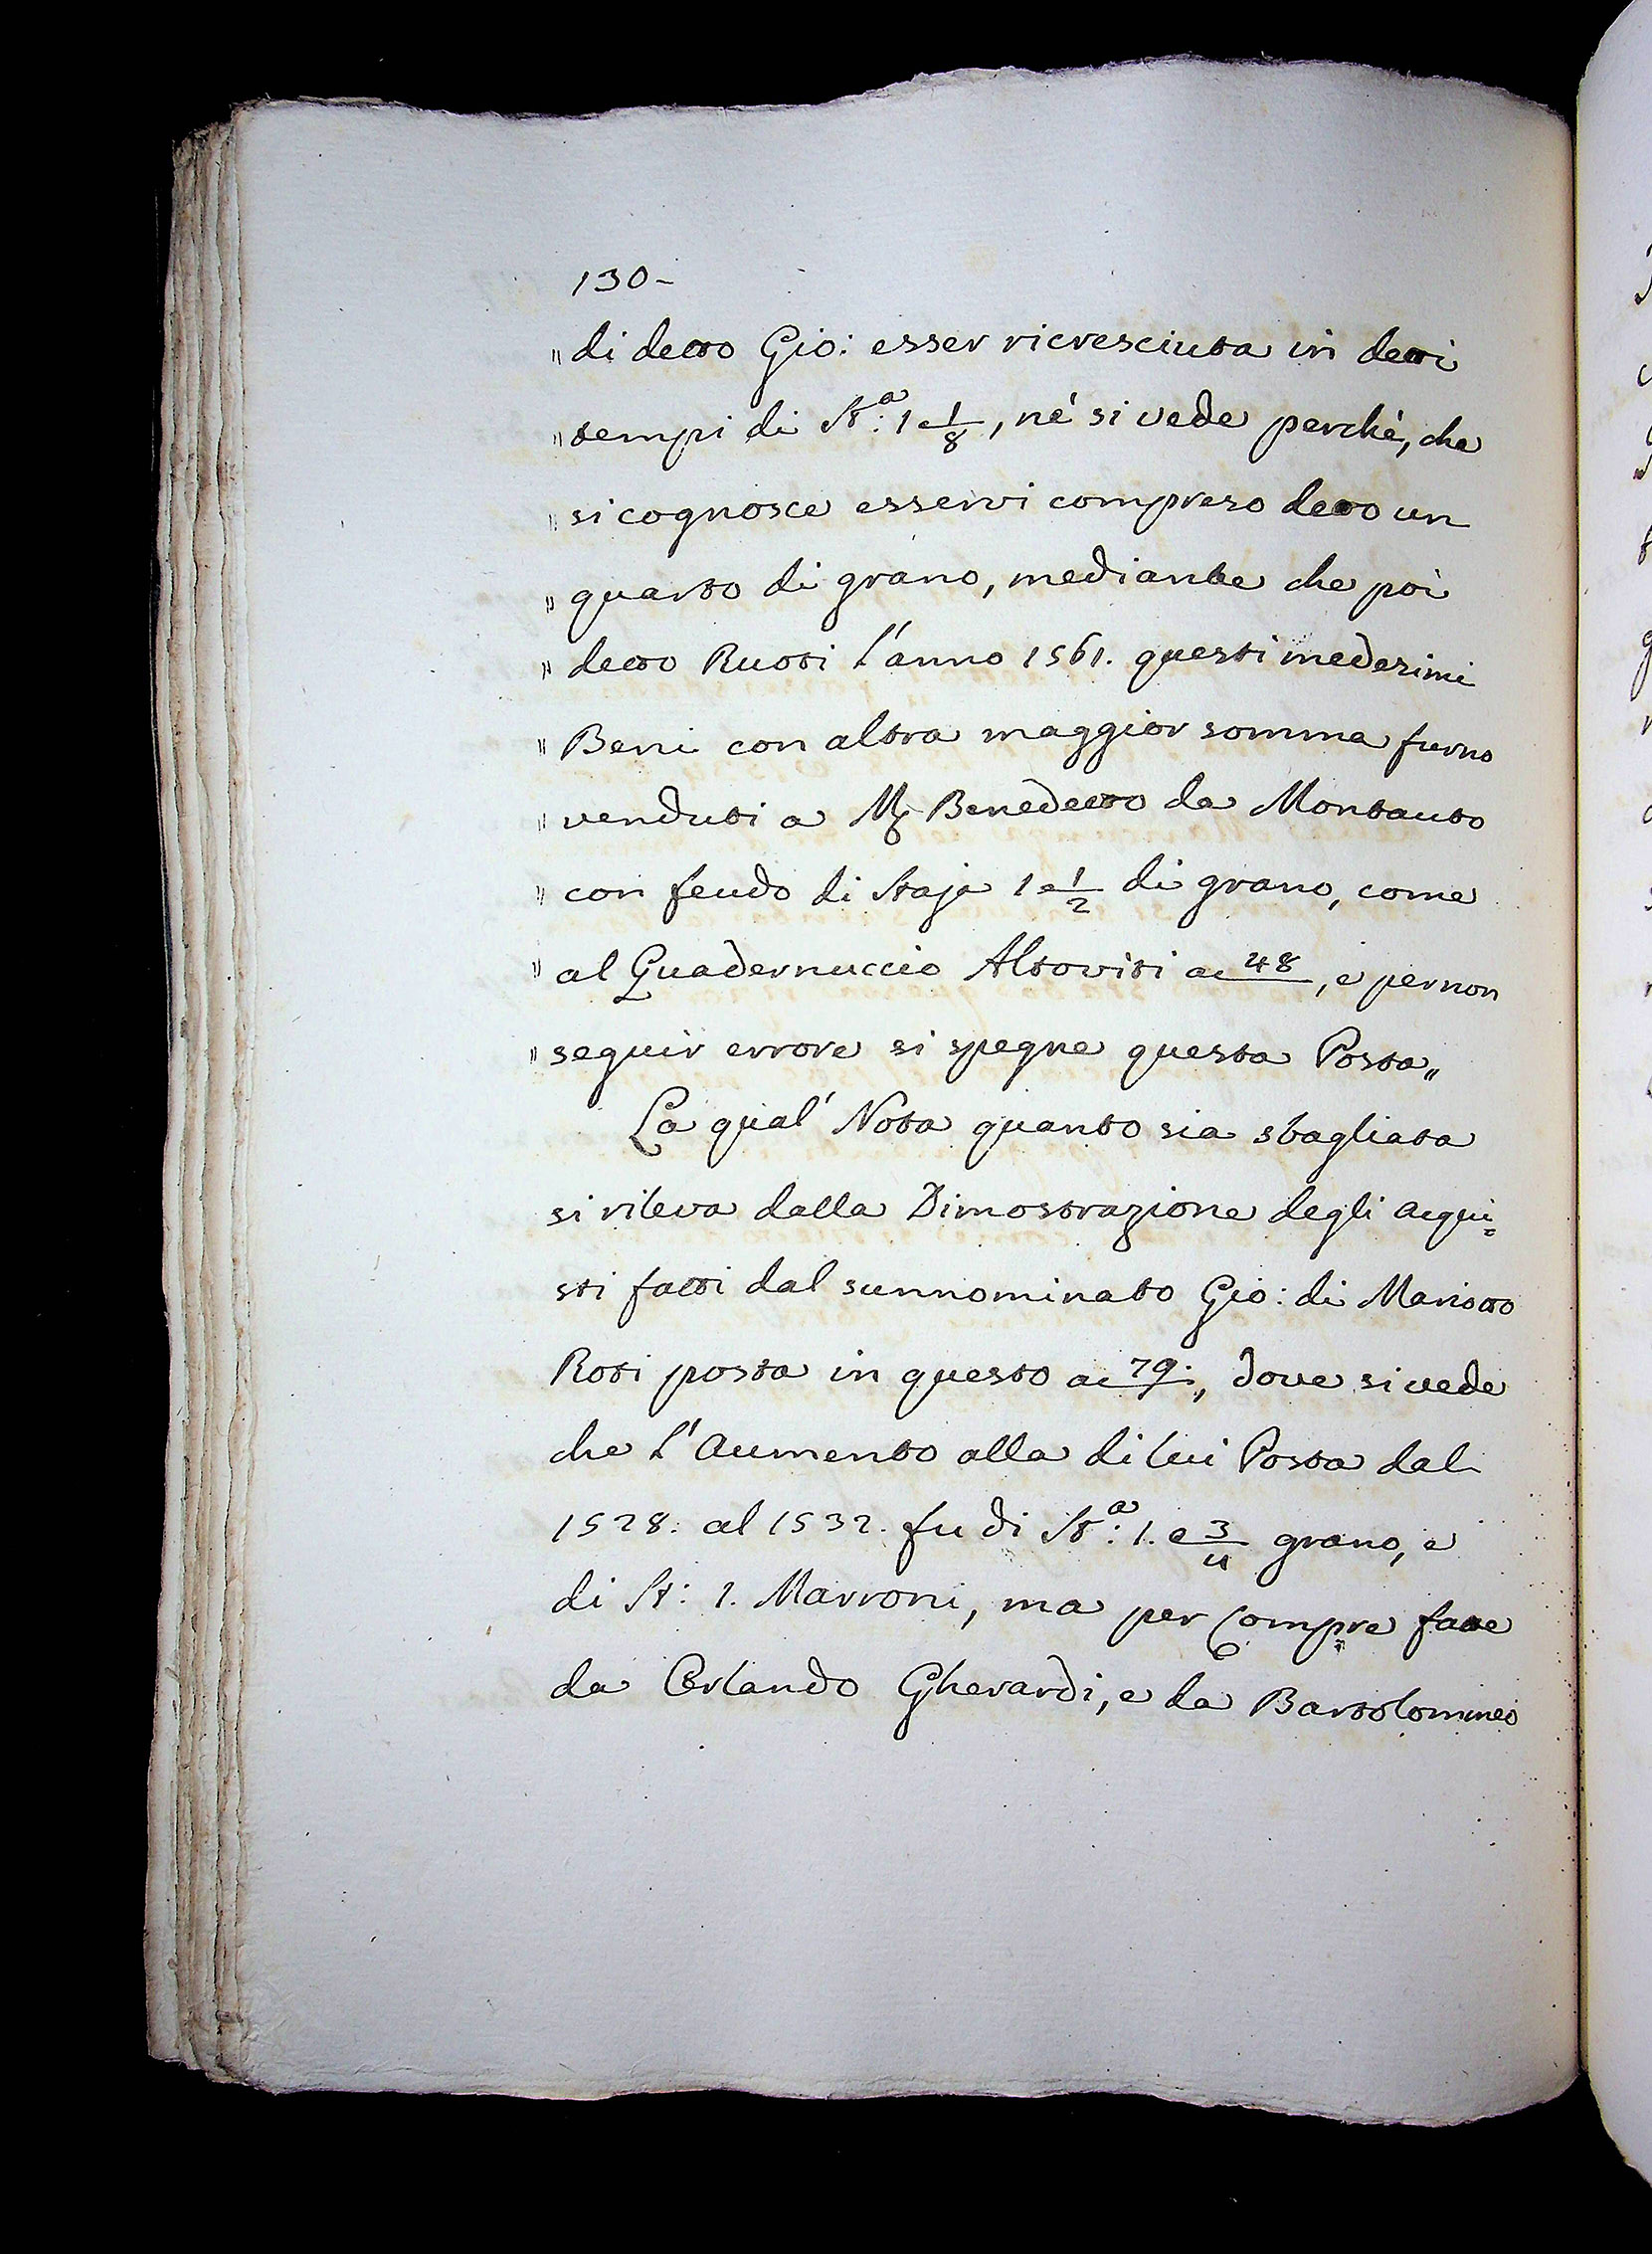 130-
" di detto Gio: esser ricresciuta in detti
" tempi di St.ª: 1 e 1/8, nè si vede perchè, che
" si cognosce esservi compreso detto un
" quarto di grano, mediante che poi
" detto Ruoti l'anno 1561. questi medesimi
" Beni con altra maggior somma furno
" venduti a Mr Benedetto da Montauto
" con feudo di Staja 1 e 1/2 di grano, come
" al Quadernuccio Altoviti ac 48, e per non
" seguir errore si spegne questa Posta "
La qual' Nota quanto sia sbagliata
si rileva dalla Dimostrazione degli acqui=
sti fatti dal sunnominato Gio: di Mariotto
Roti posta in questo ac 79., dove si vede
che l'Aumento alla di lui Posta dal
1528. al 1532. fu di St.ª: 1. e 3/4 grano, e
di St: 1. Marroni, ma per Compre fatte
da Orlando Gherardi, e da Bartolommeo